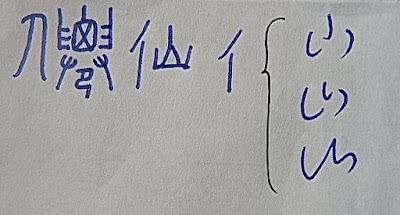 僊 仙 亻 { 山
山
山